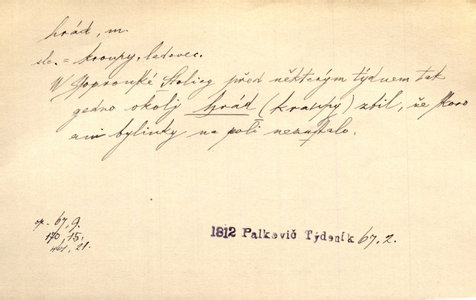 hrád, m.
sle. = kroupy, ledovec.
W Šopronské Stolicy před některým týdnem tak
gedno okolj hrád (kraupy) zbil, že skoro
ani bylinky na poli nezustalo.
op. 67, 9.
170, 15.
461, 21.
1812 Palkovič Týdeník 67, 2.